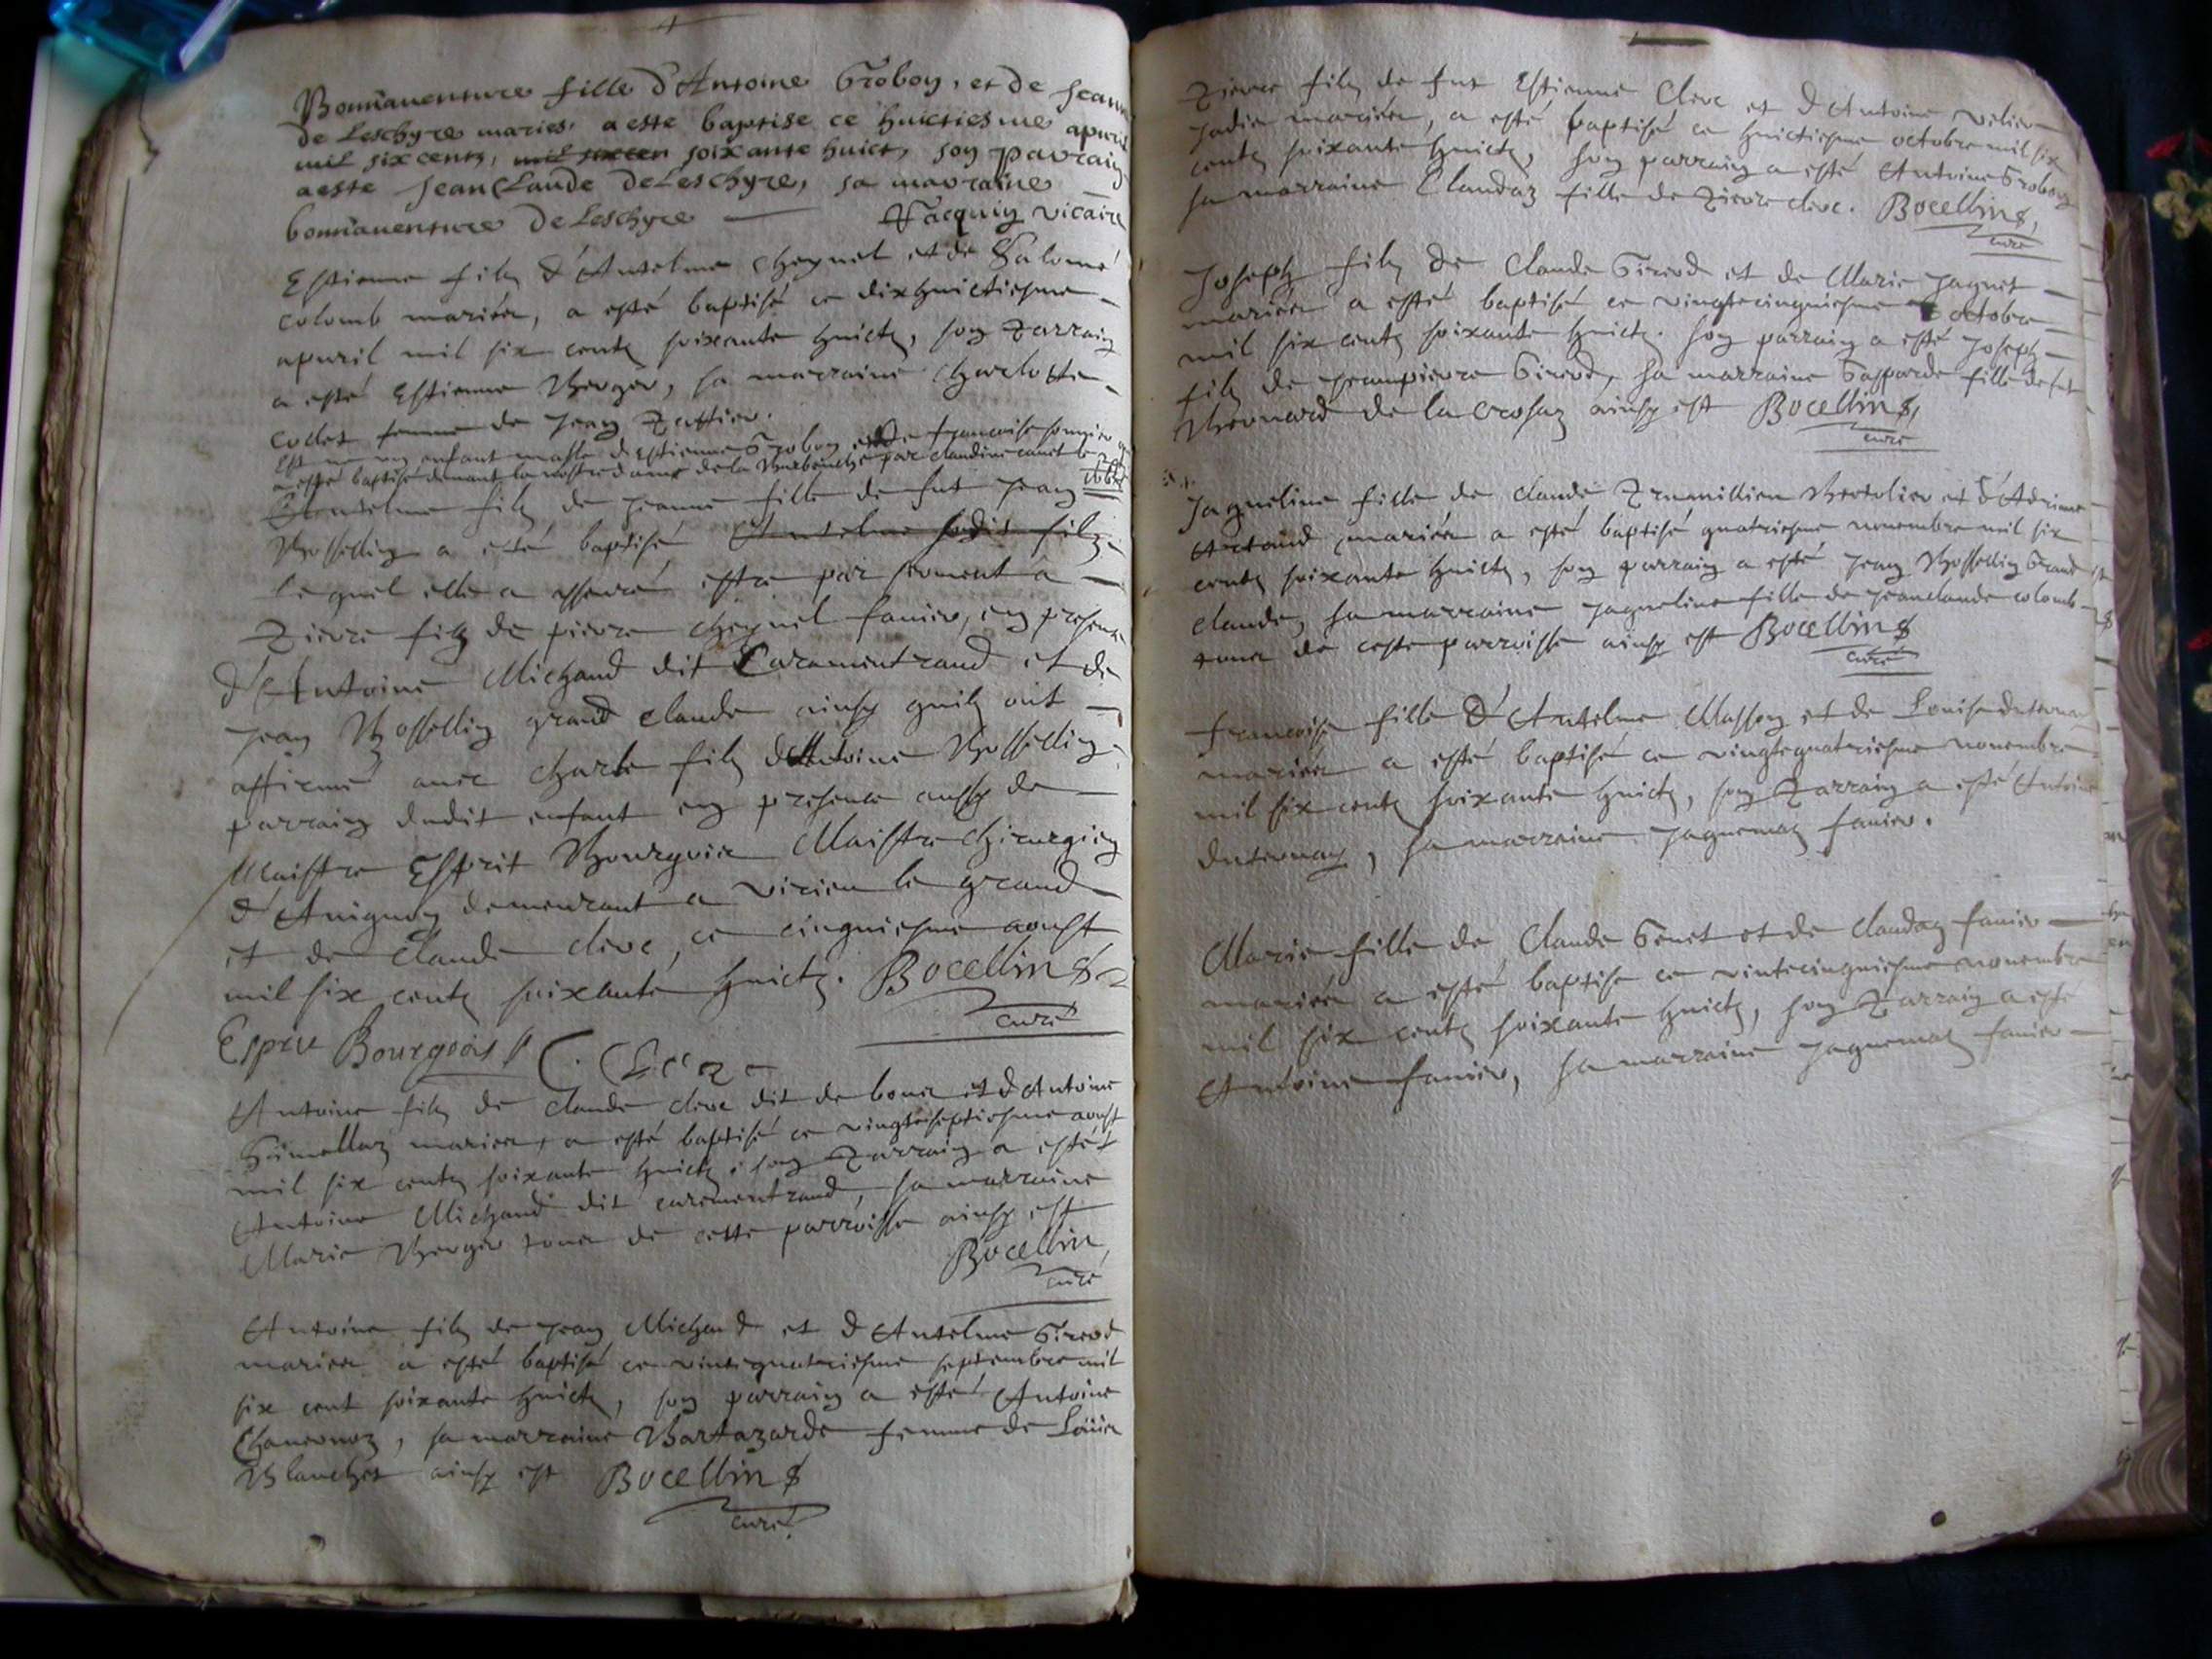 Bonnauenture fille d'Antoine Groboz, et de Jeanne
de Leschyre maries, a este baptise ce huictiesme apuril
mil six centz, mil sixcen soixante huict, son parrain
a este Jean Claude de Leschyre, sa marraine
bonnauenture de Leschyre Jacquin vicaire
Estienne filz d'Antelme Cheynel et de Salomé
Colomb mariés, a esté baptisé ce dixhuictiesme
apuril mil six centz soixante huictz, son Parrain
a esté Estienne Berger, sa marraine Charlotte
Codet femme de Jean
Est ne un enfant masle d'Estienne Groboz et de francoise
a esté baptisé deuant la nostre dame de la par Claudine
Antelme filz de Jeanne fille de fut Jean
Bosselin a esté baptisé Antelme sodit filz
lequel elle a asseuré estre par serment a
Pierre filz de pierre Cheynel fanier, en presence
d'Antoine Michaud dit Caramentrand et de
Jean Bosselin grand Claude ainsy quilz ont
affirmé auec Charle filz d'Antoine Bosselin
parrain dudit enfant en presence aussy de
Maistre Esprit Bourgois Maistre Chirurgien
d'Auignon demeurant a Virieu le grand
et de Claude Clerc, ce cinquiesme aoust
mil six centz soixante huictz. Bocellin
curé
Esprit Bourgois C. Clerc
Antoine filz de Claude Clerc dit de bona et d'Antoine
Humellaz mariés, a esté baptisé ce vingtseptiesme aoust
mil six centz soixante huictz, son Parrain a esté
Antoine Michaud dit caramentrand, sa marraine
Marie Berger tous de cette parroisse ainsy est
Bocellin
curé
Antoine filz de Jean Michaud et d'Antelme Girod
mariés a esté baptisé ce vintequatriesme septembre mil
six cent soixante huictz, son parrain a esté Antoine
Chaneonoz, sa marraine Bartazarde femme de Louis
Blanchet ainsy est Bocellin
curé
Pierre filz de fut Estienne Clerc et d'Antoine Velier
jadis mariés, a esté baptisé ce huictiesme octobre mil six
centz soixante huictz, son parrain a esté Antoine Groboz
sa marraine Claudaz fille de Pierre Clerc. Bocellin,
curé
Joseph filz de Claude Girod et de Marie Jaquet
mariés a esté baptisé ce vingtecinquiesme octobre
mil six centz soixante huictz. son parrain a esté Joseph
filz de Jeanpierre Girod, sa marraine Gasparde fille de fut
Bernard de la Crosaz ainsy est Bocellin,
curé
Jaqueline fille de Claude Bertolier et d'Adriane
Artaud mariés a esté baptisé quatriesme nouembre mil six
centz soixante huictz, son parrain a esté Jean Bosselin Grand
Claude, sa marraine Jaqueline fille de Jeanclaude colomb
tous de ceste parroisse ainsy est Bocellin
curé
francoise fille d'Antelme Masson et de Louise duternay
mariés a esté baptisé ce vingtequatriesme nouembre
mil six centz soixante huictz, son Parrain a esté Antoine
duternay, sa marraine Jaquemaz fanier.
Marie fille de Claude Genet et de Claudaz fanier
mariés a esté baptise ce vintecinquiesme nouembre
mil six centz soixante huictz, son Parrain a esté
Antoine fanier, sa marraine Jaquemaz fanier